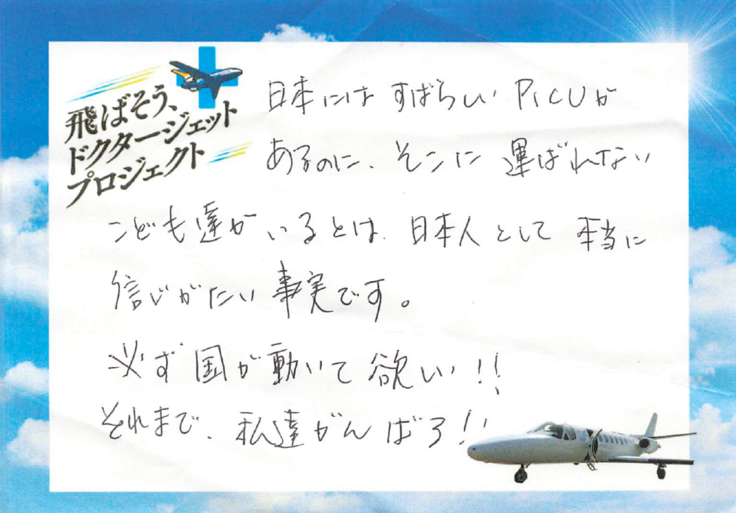 飛ばそう、
ドクタージェット
プロジェクト
日本には すばらしい PICUが
あるのに、そこに 運ばれない
こども達が いるとは、日本人として 本当に
信じがたい 事実です。
必ず 国が 動いて 欲しい!!
それまで、私達がんばろう!!